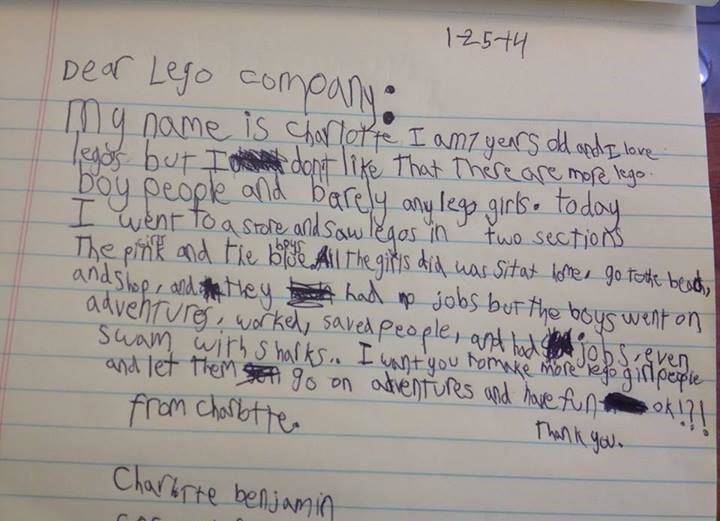 1-25-14
Dear Lego company:
My name is Charlotte I am 7 years old and I love
legos but I don't like that there are more lego
boy people and barely any lego girls. today
I went to a store and saw legos in two sections
The pink girls and the blue boys All the girls did was sit at home, go to the beach,
and shop, and they had no jobs but the boys went on
adventures, worked, saved people, and had jobs, even
swam with sharks.. I want you to make more lego girl people
and let them go on adventures and have fun ok!?!
from charlotte. Thank you.
Charlotte benjamin